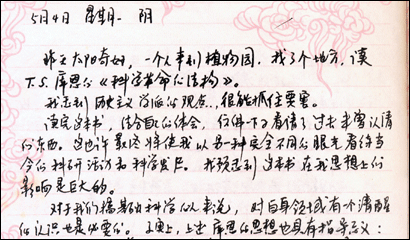 5月4日 星期一 阴
昨天太阳奇好,一个人来到植物园,找了个地方,读
T.S.库恩的《科学革命的结构》。
我感到历史主义学派的观点,很能抓住要害。
读完这本书,结合自己的体会,仿佛一下子看清了过去未曾认清
的东西。这也许最终将使我以另一种完全不同的眼光看待当
今的科研活动和科学发展。我预感到这本书在我思想上的
影响是巨大的。
对于我们搞基础科学的人来说,对自身领域有个清醒
的认识也是必要的。上述库恩的思想也具有指导意义: